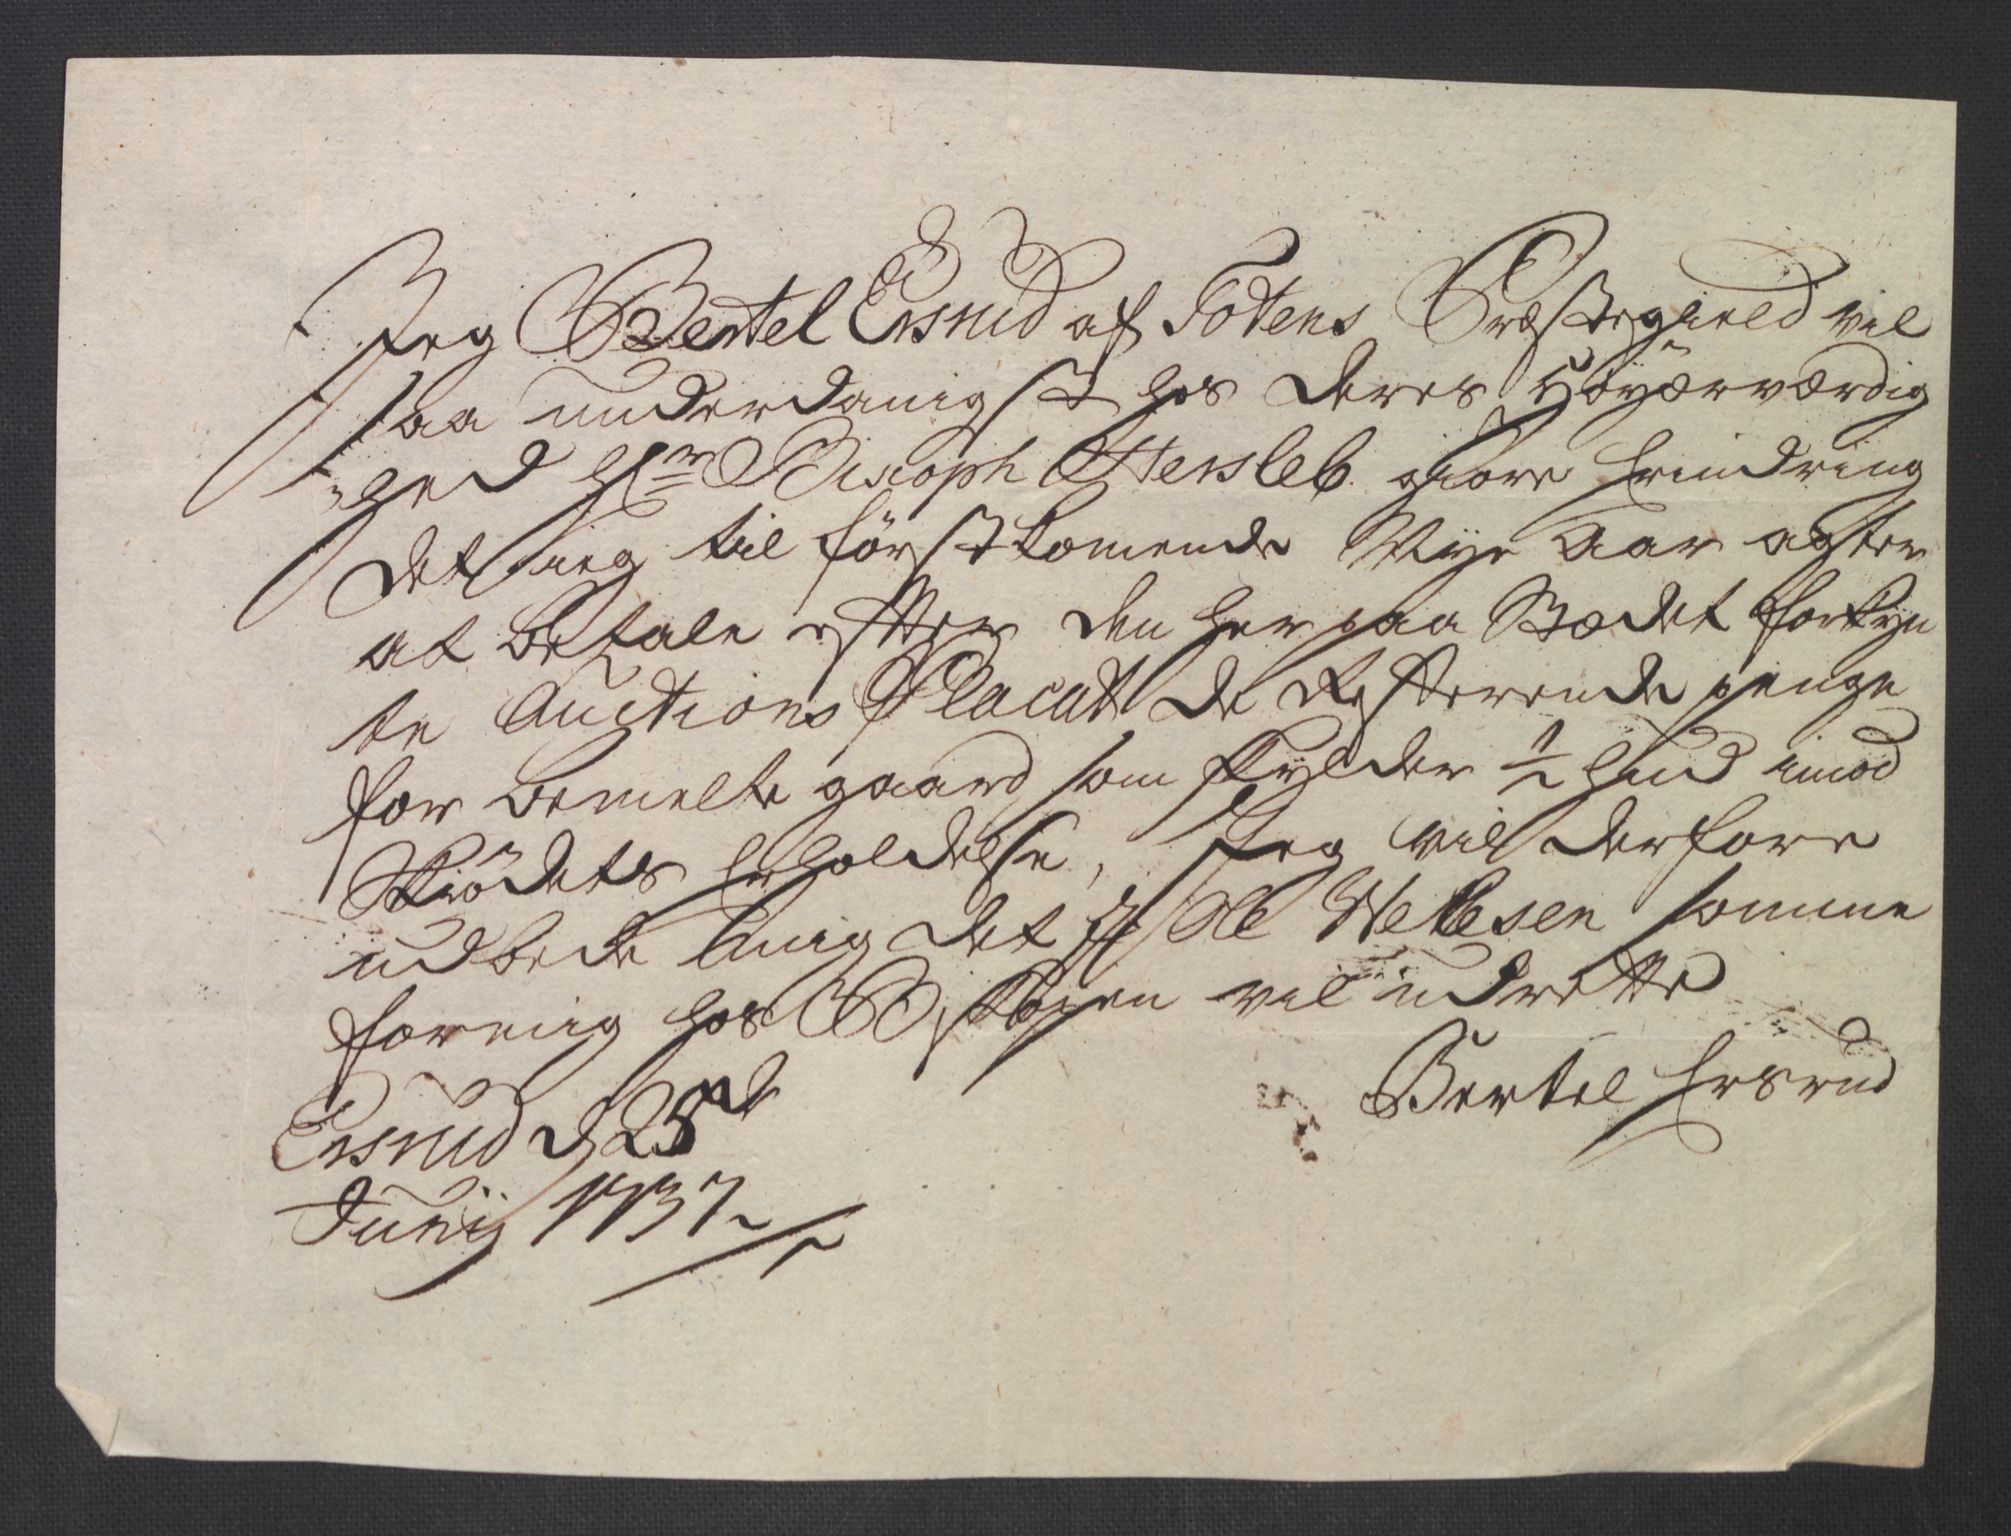 Jeg Bertel Ersrud af Totens Præstegield vil
saa underdanigst hos Deres Höyærværdig
hed Hr Biscoph Hersleb giøre Erindring
det ieg til förstkomende Nye Aar agter
at betale efter den her paa Stædet forkyn
te Auctions Placat de Resterende penge
for bemelte gaard som skylder ½ hud imod
Skiödets Erholdelse, Jeg vil derfore
udbede mig det Sr Ole Nelesen somme
for mig hos Biskopen vil udrette
Bertel Ersrud
Ersrud d 25de
Junij 1737